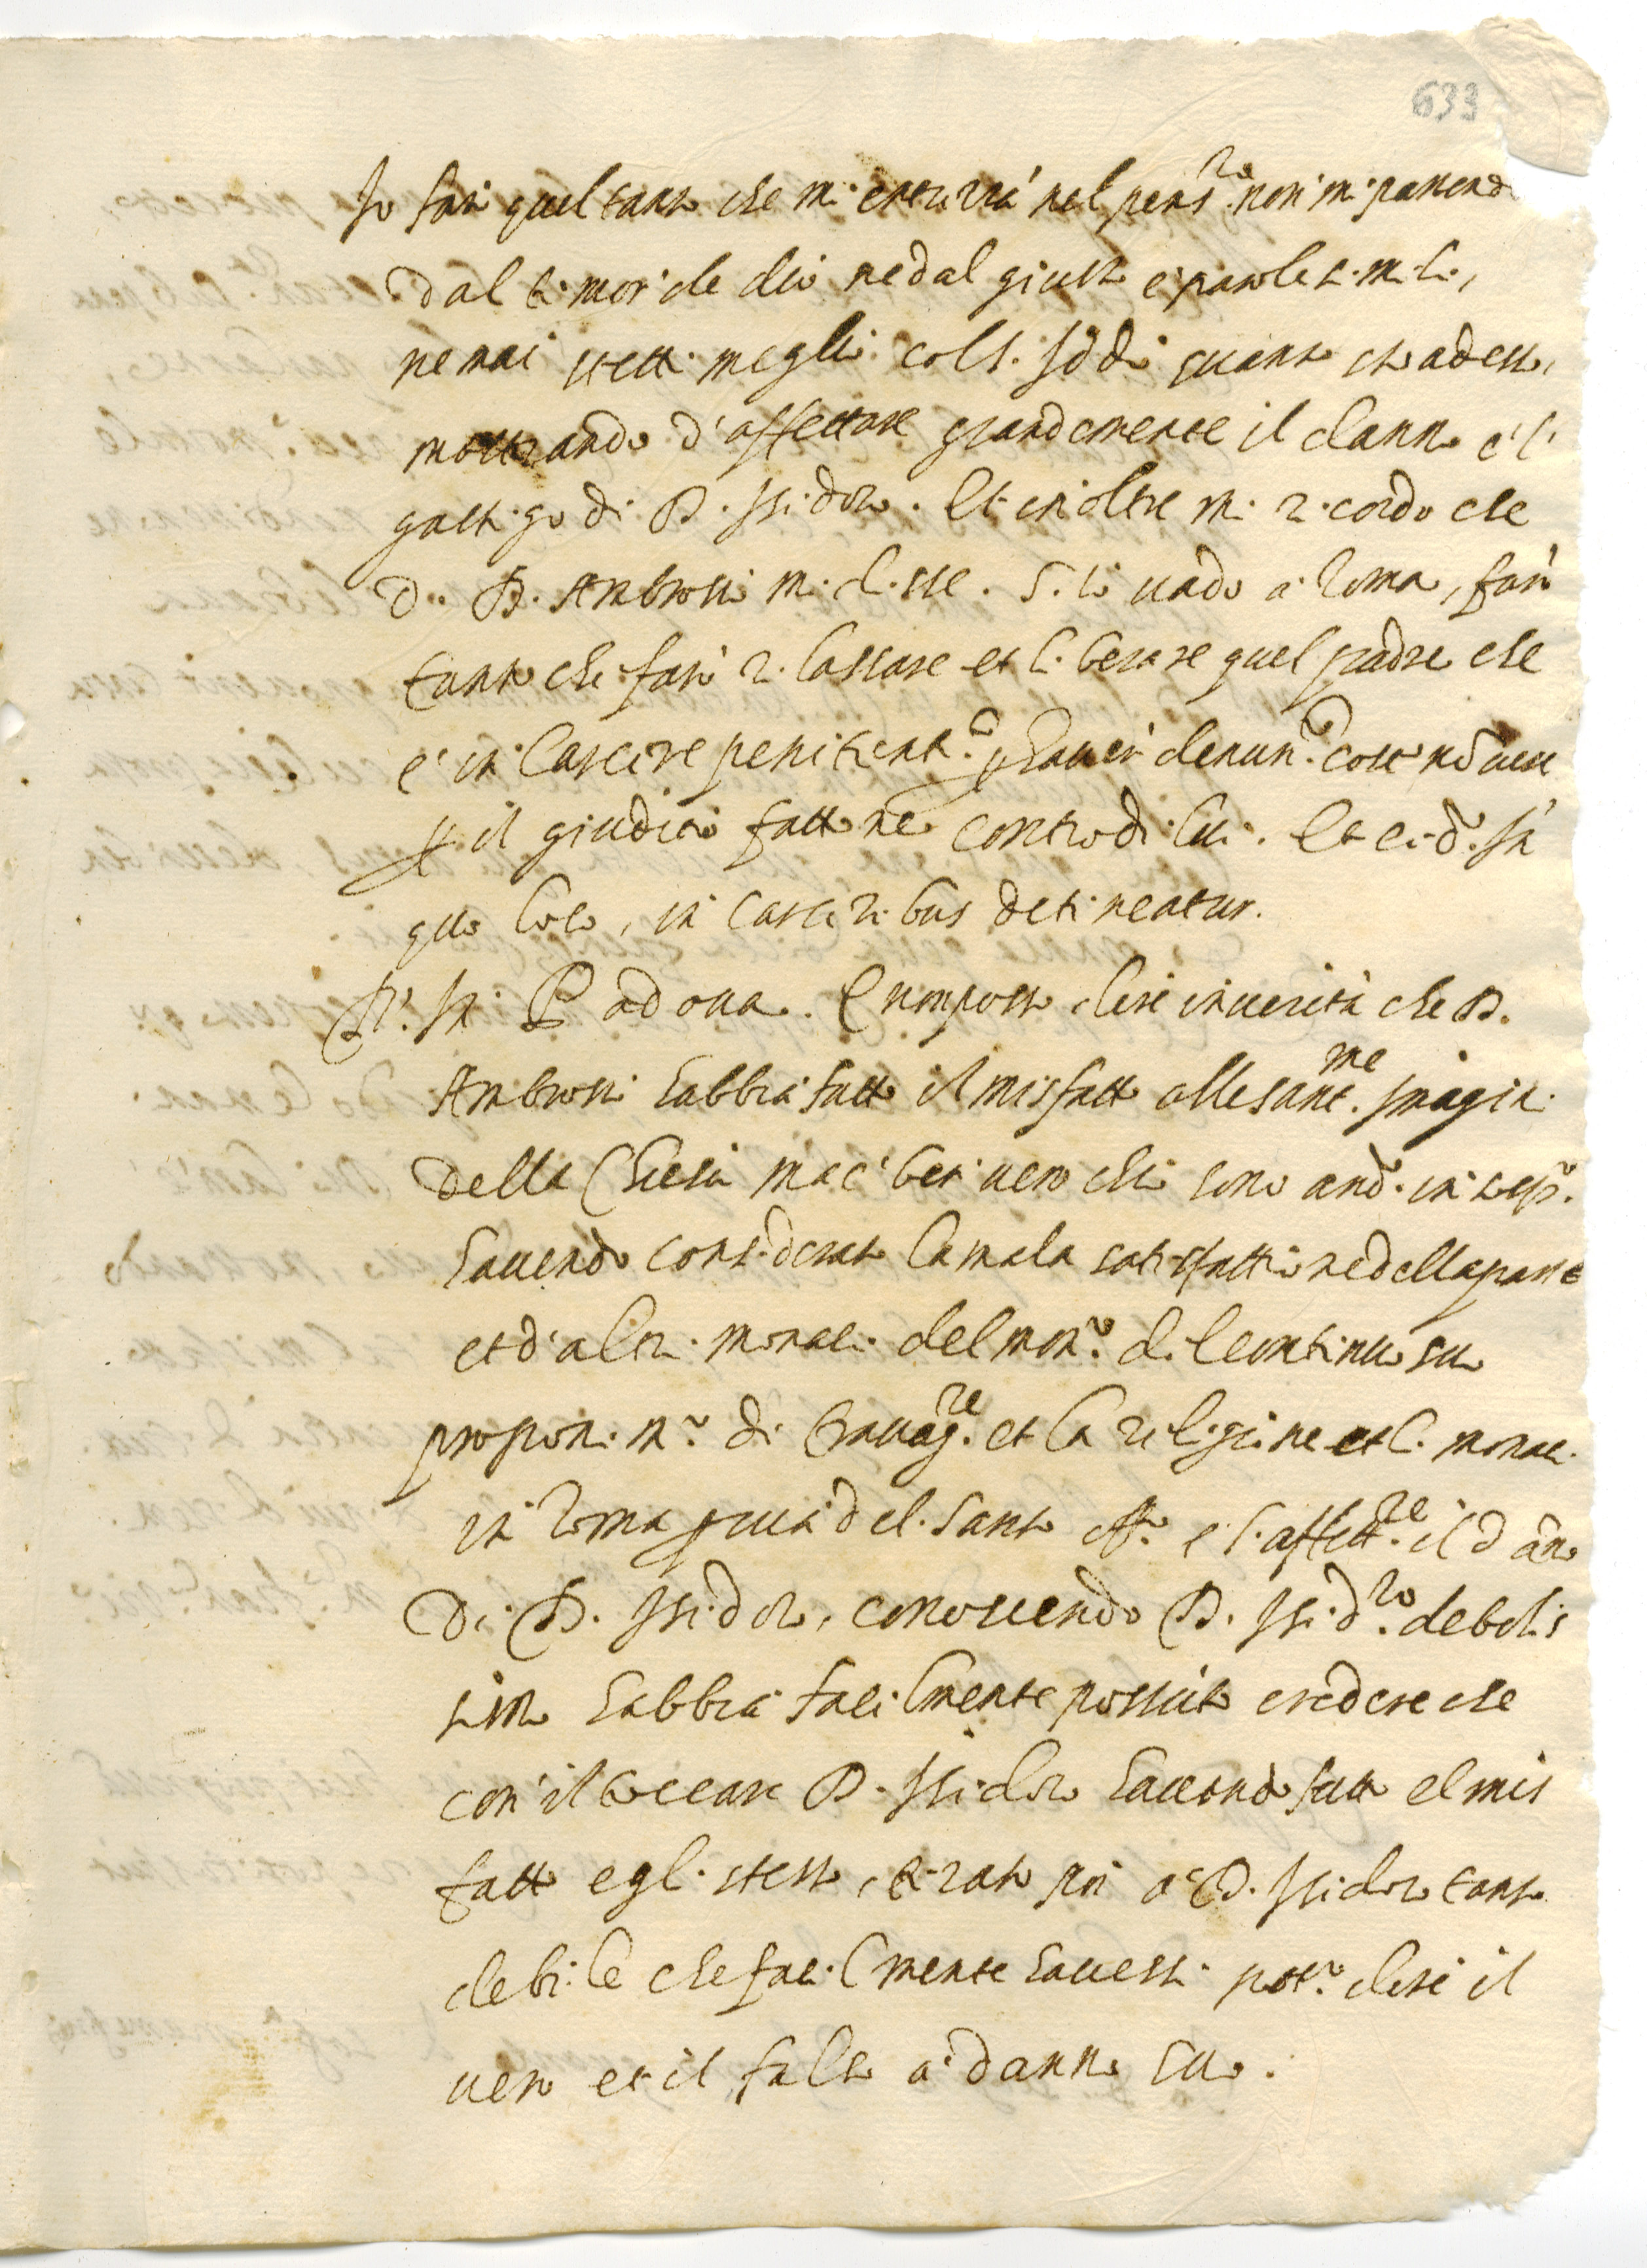 633
Io farò quel tanto che mi entrerrà nel pens.ro non mi partendo
dal timor de dio ne dal giusto e parole simili,
ne mai stetti meglio coll. Iddio quanto sto adesso,
mostrando d'affettare grandemente il danno e'l
gastigo di D. Isidoro. Et in oltre mi ricordo che
D. Ambrosio mi disse. S'io vado a Roma, farò
tanto che farò rilassare et liberare quel padre che
è in Carcere penitent.e per haver denun.to cose nõ vere
per il giuditio fattone contro di lui. Et ei d. In
quo loco, in Carceribus detineatur.
R. In Padova. E non posso dire in verità che D.
Ambrosio habbia fatto il misfatto alle sant.me Imagini
della Chiesa ma è ben vero che sono and.o in sosp.o
havendo considerato la mala satisfattione della parte
et d'altri monaci del mon.o di Leontinu suo
proponim.o di travag.re et la religione et l. monaci
in Roma per via del Santo off.o e l'affett.re il dãno
di D. Isidoro, conoscendo D. Isid.ro debolis
simo habbia facilmente possuto credere che
con il toccare D. Isidoro havendo fatto el mis
fatto egli stesso, tirato poi a D. Isidoro tanto
debile che facilmente havessi pot.o dire il
vero et il falso a danno suo.